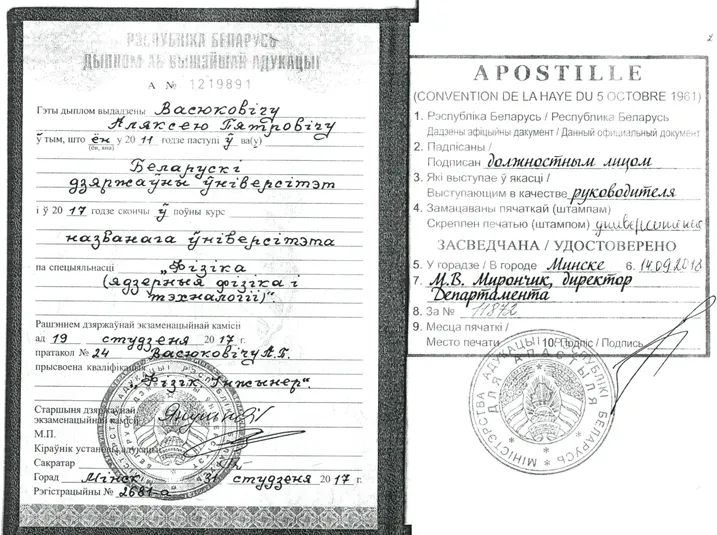 РЭСПУБЛІКА БЕЛАРУСЬ
ДЫПЛОМ АБ ВЫШЭЙШАЙ АДУКАЦЫІ
А № 1219891
Гэты дыплом выдадзены Васюковічу
Аляксею Пятровічу
ў тым, што ён у 2011 годзе паступіў ва(у)
(ён, яна)
Беларускі
дзяржаўны ўніверсітэт
і ў 2017 годзе скончыў поўны курс
названага ўніверсітэта
па спецыяльнасці „Фізіка
(ядзерныя фізіка і
тэхналогіі)“
Рашэннем дзяржаўнай экзаменацыйнай камісіі
ад 19 студзеня 2017 г.
пратакол № 24 Васюковічу А.П.
прысвоена кваліфікацыя
„Фізік. Інжынер“
Старшыня дзяржаўнай
экзаменацыйнай камісіі
М.П.
Кіраўнік установы адукацыі
Сакратар
Горад Мінск 31 студзеня 2017 г.
Рэгістрацыйны № 2681-а
2
APOSTILLE
(CONVENTION DE LA HAYE DU 5 OCTOBRE 1961)
1. Рэспубліка Беларусь / Республика Беларусь
Дадзены афіцыйны дакумент / Данный официальный документ
2. Падпісаны /
Подписан должностным лицом
3. Які выступае ў якасці /
Выступающим в качестве руководителя
4. Замацаваны пячаткай (штампам)
Скреплен печатью (штампом) университета
ЗАСВЕДЧАНА / УДОСТОВЕРЕНО
5. У горадзе / В городе Минске 6. 14.09.2018
7. М.В. Мирончик, директор
Департамента
8. За № 11872
9. Месца пячаткі /
Место печати 10. Подпіс / Подпись
МІНІСТЭРСТВА АДУКАЦЫІ РЭСПУБЛІКІ БЕЛАРУСЬ
ДЛЯ АПАСТЫЛЯ